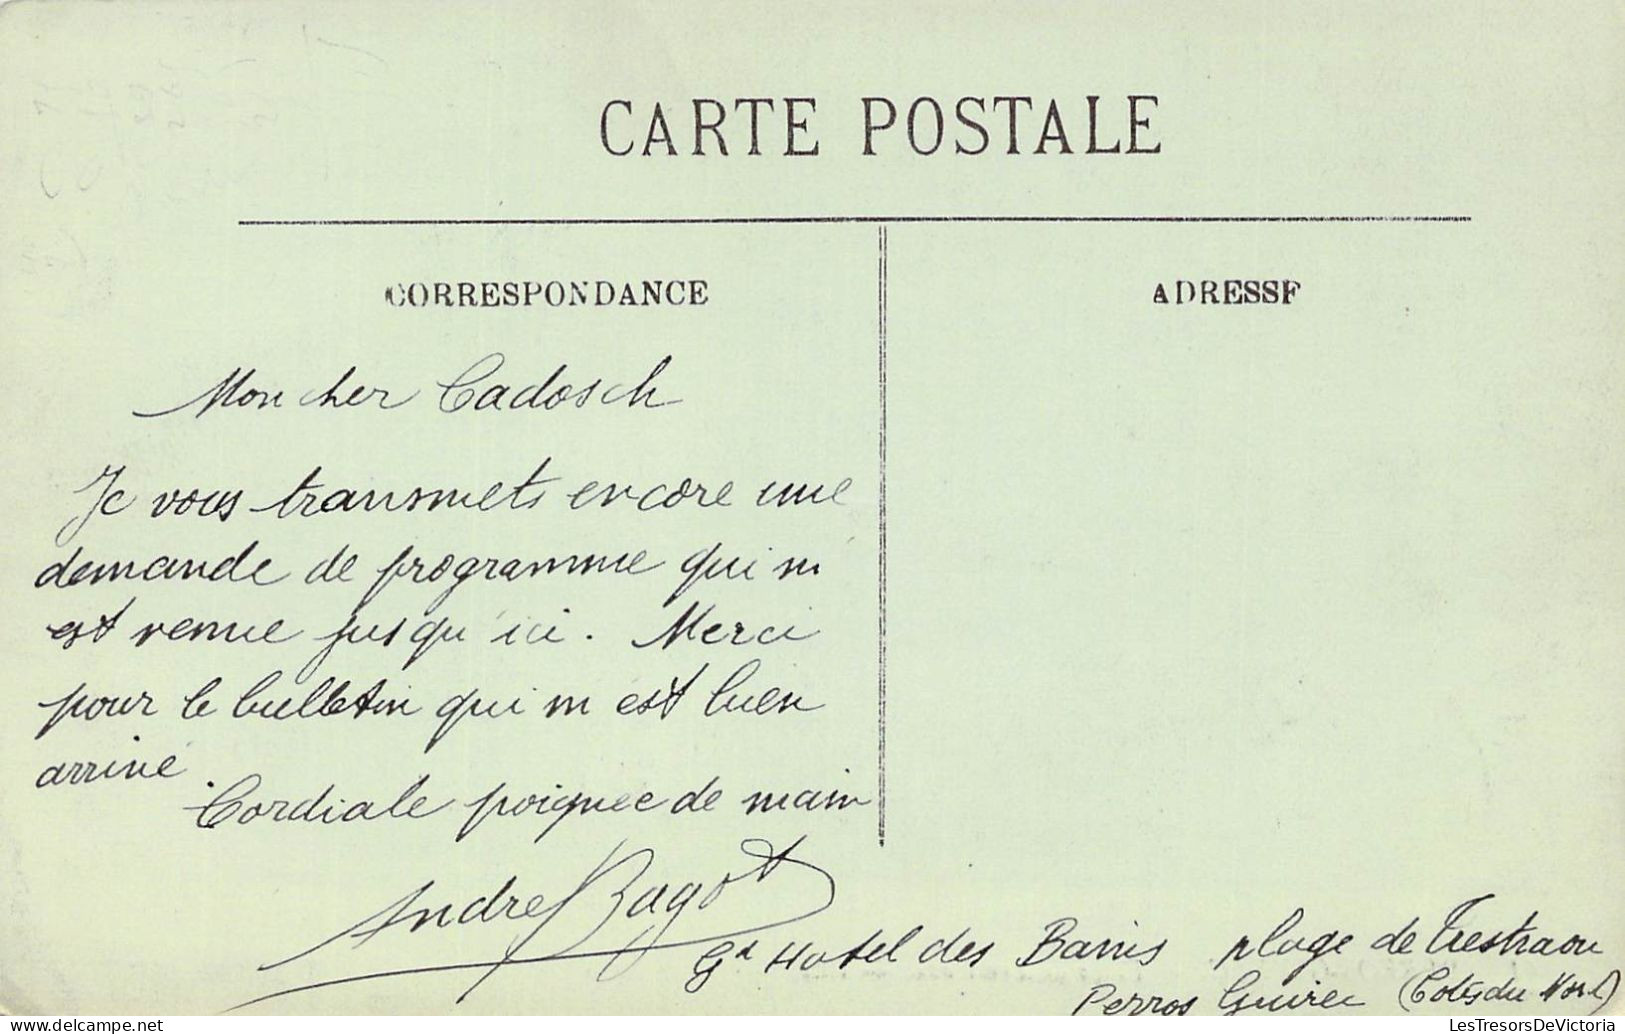 CARTE POSTALE
CORRESPONDANCE
ADRESSE
Mon cher Cadosch
Je vous transmets encore une
demande de programme qui m
est venue jusqu'ici. Merci
pour le bulletin qui m est bien
arrivé.
Cordiale poignée de main
André Bagot
Gd Hotel des Bains plage de Trestraou
Perros Guirec (Côtes du Nord)
LesTresorsDeVictoria